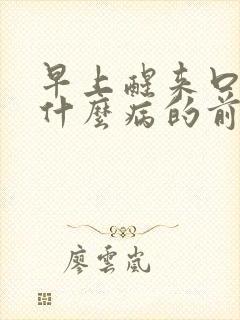 早上醒来口
什麼病的前
廖雲嵐